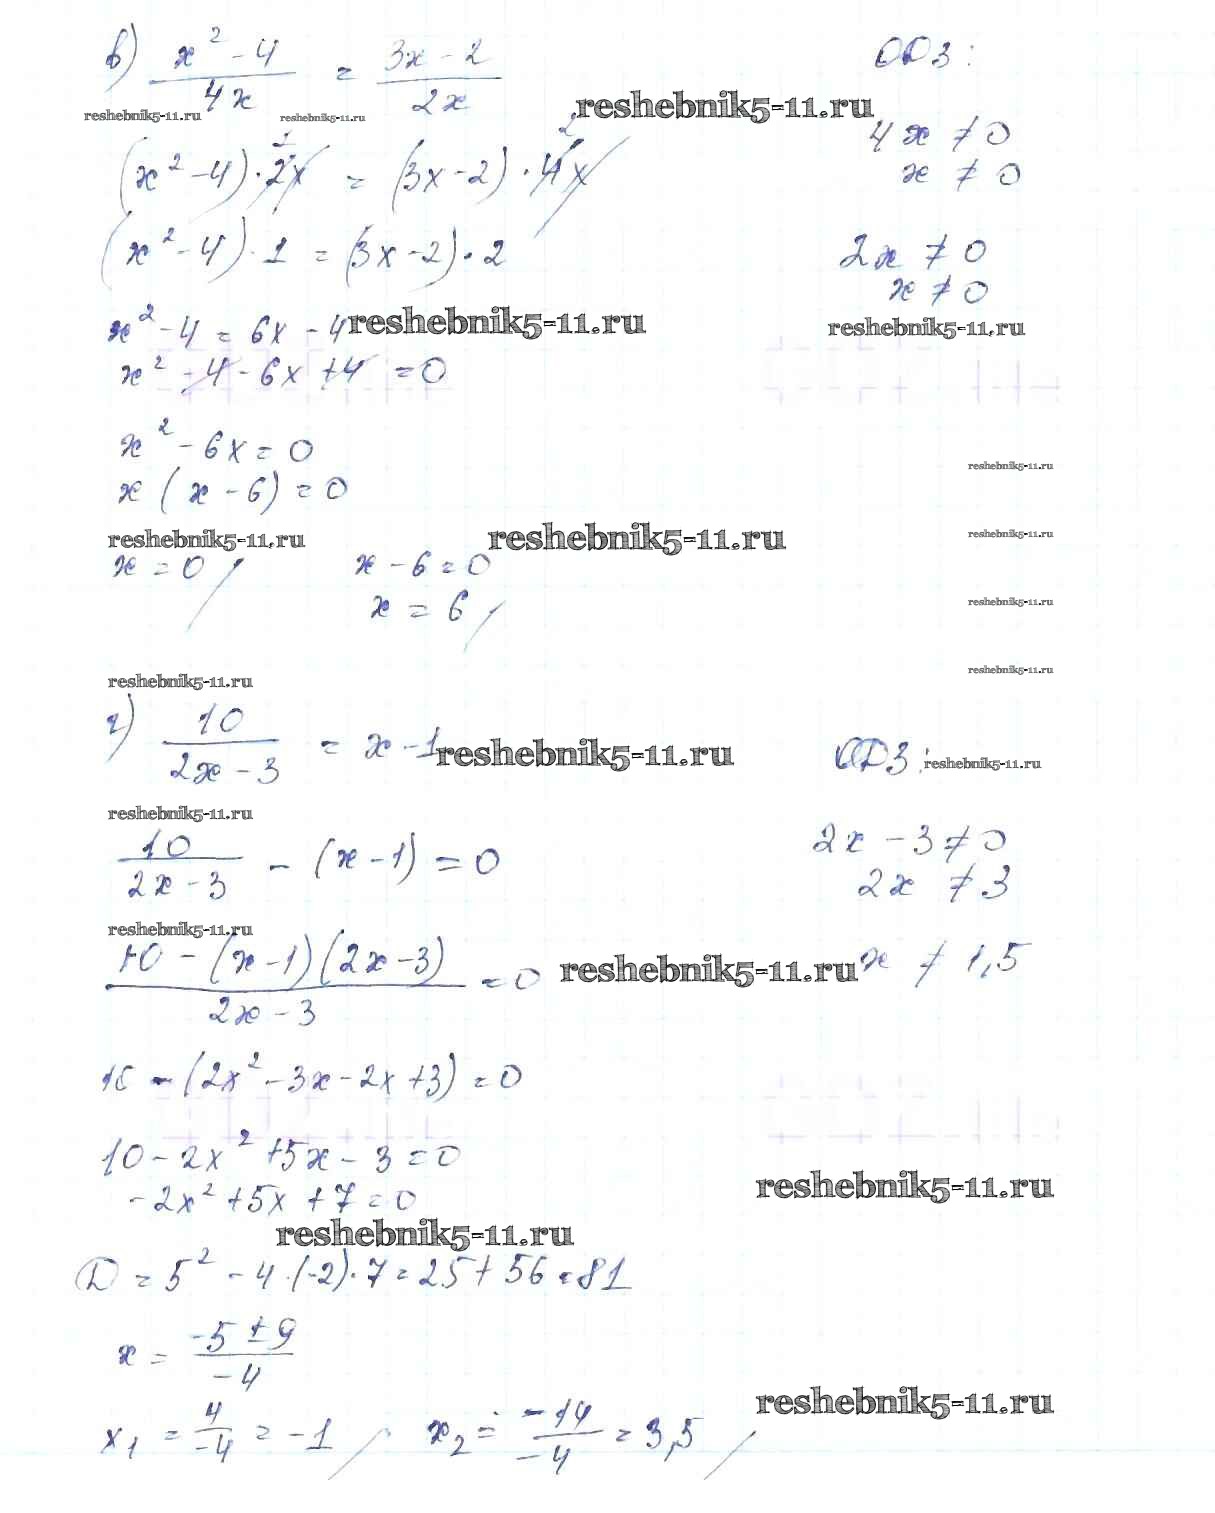 в) (x² - 4)/(4x) = (3x - 2)/(2x) ОДЗ:
reshebnik5-11.ru reshebnik5-11.ru reshebnik5-11.ru
4x ≠ 0
(x² - 4) · 2x 1 = (3x - 2) · 4x 2 x ≠ 0
(x² - 4) · 1 = (3x - 2) · 2 2x ≠ 0
x ≠ 0
x² - 4 = 6x - 4 reshebnik5-11.ru reshebnik5-11.ru
x² - 4 - 6x + 4 = 0
x² - 6x = 0
reshebnik5-11.ru
x (x - 6) = 0
reshebnik5-11.ru reshebnik5-11.ru reshebnik5-11.ru
x = 0 x - 6 = 0
x = 6 reshebnik5-11.ru
reshebnik5-11.ru reshebnik5-11.ru
г) 10/(2x - 3) = x - 1 reshebnik5-11.ru ОДЗ: reshebnik5-11.ru
reshebnik5-11.ru
10/(2x - 3) - (x - 1) = 0 2x - 3 ≠ 0
2x ≠ 3
reshebnik5-11.ru
(10 - (x - 1)(2x - 3))/(2x - 3) = 0 reshebnik5-11.ru x ≠ 1,5
10 - (2x² - 3x - 2x + 3) = 0
10 - 2x² + 5x - 3 = 0
reshebnik5-11.ru
-2x² + 5x + 7 = 0
reshebnik5-11.ru
D = 5² - 4 · (-2) · 7 = 25 + 56 = 81
x = (-5 ± 9)/(-4)
reshebnik5-11.ru
x₁ = 4/(-4) = -1 x₂ = (-14)/(-4) = 3,5